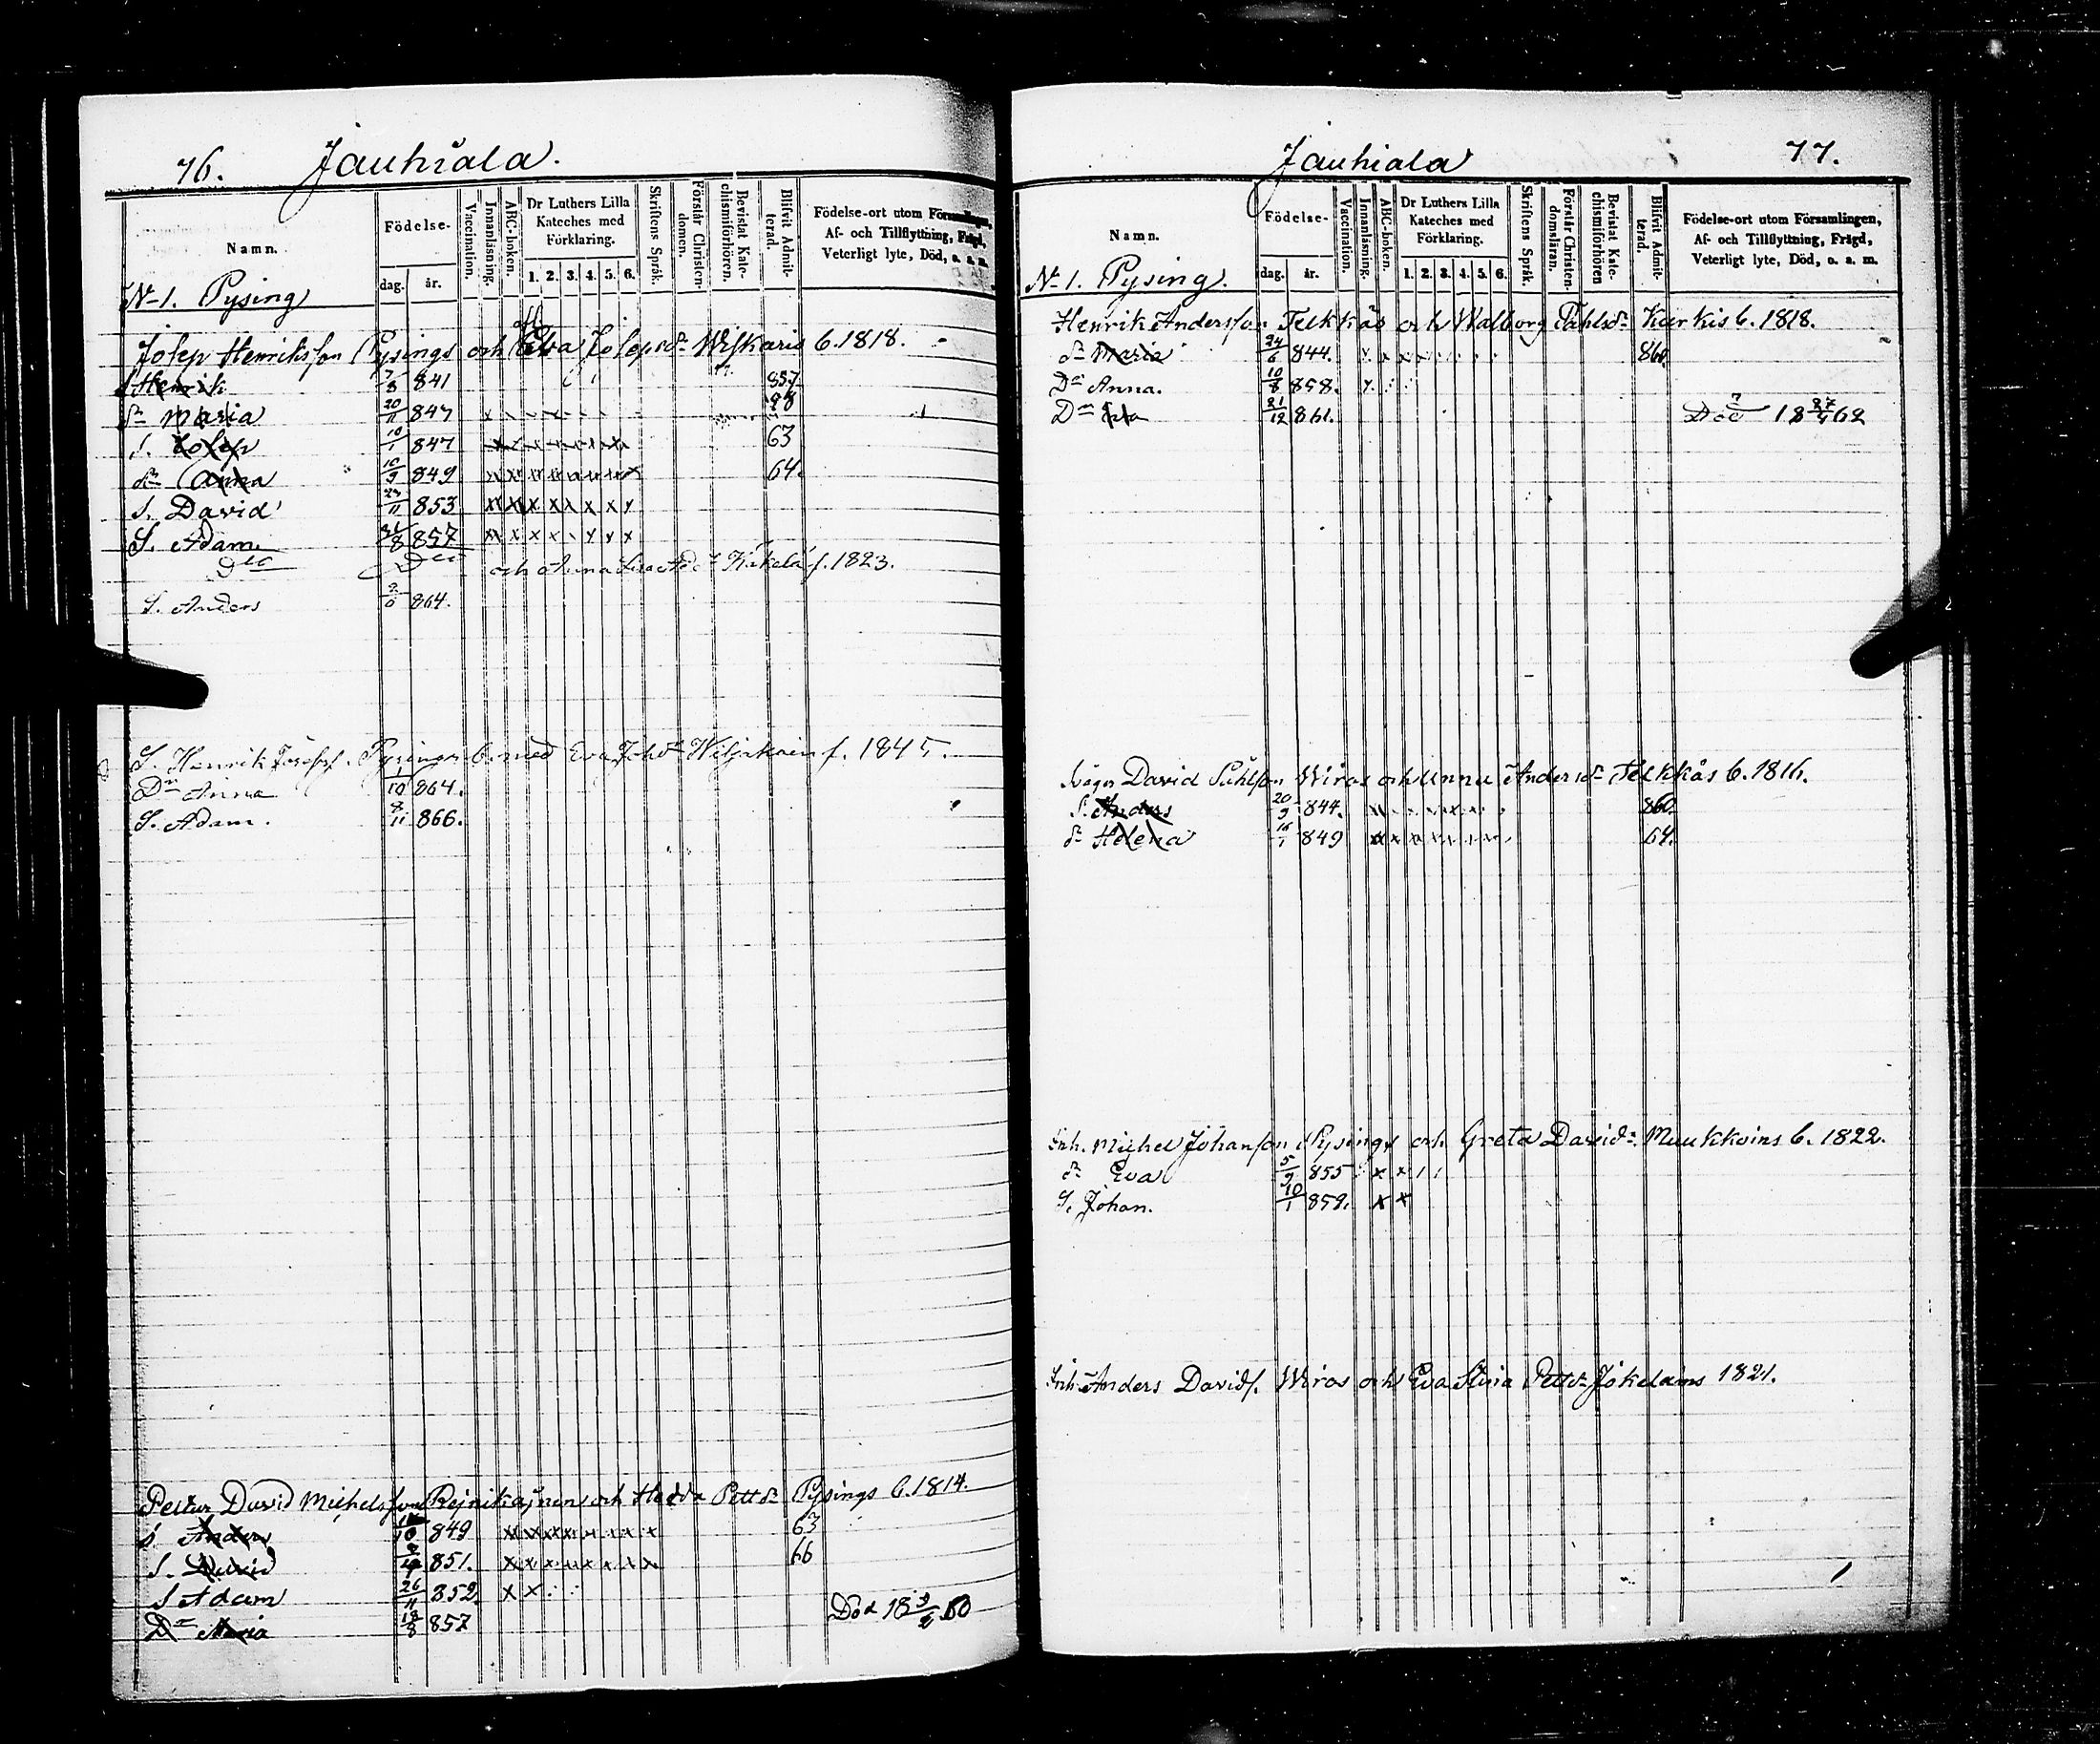 76. Jauhiala.
Namn.
Födelse-
dag. år.
Vaccination.
Innanläsning.
ABC-boken.
Dr Luthers Lilla Kateches med Förklaring.
1. 2. 3. 4. 5. 6.
Skriftens Språk.
Förstår Christendomen.
Bevistat Katechismiförhören.
Blifvit Admitterad.
Födelse-ort utom Församlingen,
Af- och Tillflyttning, Frägd,
Veterligt lyte, Död, o. s. m.
N-1. Pysing
Josep Henriksson Pysings och Eva Josepsdr Wiskaris b. 1818.
Henrik 7/8 841 857
dr Maria 20/11 847
S. Josep 10/1 847 63
dr Anna 10/9 849 64.
S. David 853
S. Adam. 857
Dito Dito och Anna f. 1823.
S. Anders 864.
S. Henrik Josefss. Pysingen b. med Eva f. 1845.
Dr Anna 1/10 864.
S. Adam. 8/11 866.
David Michelsson och Hedda Pettdr Pysings b. 1814.
S. Anders 849 63
S. David 851. 66
S Adam 26/11 852
Dr Maria 18/8 857 Död 18 3/2 60
Jauhiala 77.
Namn.
Födelse-
dag. år.
Vaccination.
Innanläsning.
ABC-boken.
Dr Luthers Lilla Kateches med Förklaring.
1. 2. 3. 4. 5. 6.
Skriftens Språk.
Förstår Christendomsläran.
Bevistat Katechismiförhören
Blifvit Admitterad.
Födelse-ort utom Församlingen,
Af- och Tillflyttning, Frägd,
Veterligt lyte, Död, o. s. m.
N-1. Pysing.
Henrik Andersson Telkkäs och Walborg Påhlsdr Kurkis b. 1818.
dr Maria 24/6 844. 860
Dr Anna. 10/8 858.
Dr Eva 21/12 861. Död 18 27/4 62
Anna Andersdr Telkkäs b. 1816.
S. Anders 20/9 844. 860.
dr Helena 849 64.
Inh. Michel Johansson Pysings och Greta Davidr. Muukkoins b. 1822.
dr Eva 5/9 855
S. Johan. 10/1 859.
Inh. Anders Davids. Wiros och Eva Stina Pettdr Jokelains 1821.